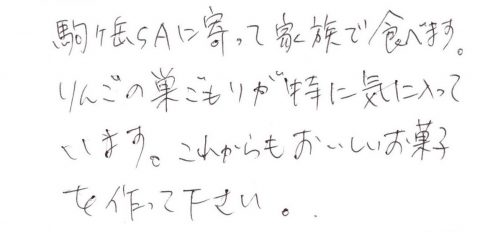 駒ヶ岳SAに寄って家族で食べます。
りんごの巣ごもりが特に気に入って
います。これからもおいしいお菓子
を作って下さい。